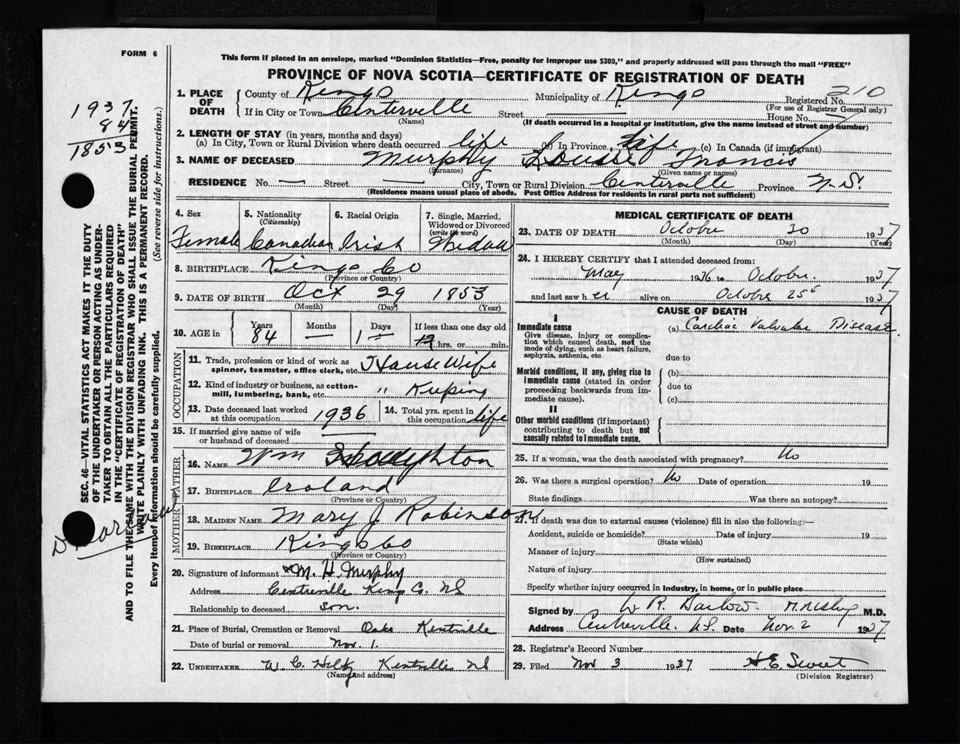 FORM 6
This form if placed in an envelope, marked "Dominion Statistics—Free, penalty for improper use $300," and properly addressed will pass through the mail "FREE"
PROVINCE OF NOVA SCOTIA—CERTIFICATE OF REGISTRATION OF DEATH
1937
84
1853
1. PLACE OF DEATH
County of Kings Municipality of Kings Registered No. 210
(For use of Registrar General only)
If in City or Town Centerville Street House No.
(Name) (If death occurred in a hospital or institution, give the name instead of street and number)
2. LENGTH OF STAY (in years, months and days)
(a) In City, Town or Rural Division where death occurred life (b) In Province life (c) In Canada (if immigrant)
3. NAME OF DECEASED Murphy Louise Francis
(Surname) (Given name or names)
RESIDENCE No. — Street — City, Town or Rural Division Centerville Province N.S.
(Residence means usual place of abode. Post Office Address for residents in rural parts not sufficient)
4. Sex
Female
5. Nationality (Citizenship)
Canadian
6. Racial Origin
Irish
7. Single, Married, Widowed or Divorced (write the word)
Widow
8. BIRTHPLACE Kings Co
(Province or Country)
9. DATE OF BIRTH Oct 29 1853
(Month) (Day) (Year)
10. AGE in Years 84 Months — Days 1 If less than one day old
hrs. or min.
OCCUPATION
11. Trade, profession or kind of work as spinner, teamster, office clerk, etc. House Wife
12. Kind of industry or business, as cotton-mill, lumbering, bank, etc. " Keeping
13. Date deceased last worked at this occupation 1936
14. Total yrs. spent in this occupation life
15. If married give name of wife or husband of deceased —
FATHER
16. NAME Wm
17. BIRTHPLACE Ireland
(Province or Country)
MOTHER
18. MAIDEN NAME Mary J Robinson
19. BIRTHPLACE Kings Co
(Province or Country)
20. Signature of informant M. H. Murphy
Address Centreville Kings Co. NS
Relationship to deceased son.
21. Place of Burial, Cremation or Removal Oaks Kentville
Date of burial or removal Nov. 1.
22. UNDERTAKER W. C. Kentville NS
(Name and address)
MEDICAL CERTIFICATE OF DEATH
23. DATE OF DEATH October 30 1937
(Month) (Day) (Year)
24. I HEREBY CERTIFY that I attended deceased from:
May 1936 to October. 1937
and last saw her alive on October 25th 1937
CAUSE OF DEATH
I
Immediate cause
Give disease, injury or complication which caused death, not the mode of dying, such as heart failure, asphyxia, asthenia, etc.
(a) Cardiac Valvular Disease
due to
Morbid conditions, if any, giving rise to immediate cause (stated in order proceeding backwards from immediate cause).
(b)
due to
(c)
II
Other morbid conditions (if important) contributing to death but not causally related to immediate cause.
25. If a woman, was the death associated with pregnancy? No
26. Was there a surgical operation? No Date of operation 19
State findings Was there an autopsy?
27. If death was due to external causes (violence) fill in also the following:—
Accident, suicide or homicide? Date of injury 19
(State which)
Manner of injury
(How sustained)
Nature of injury
Specify whether injury occurred in industry, in home, or in public place
Signed by W R. Barlow M.D.
Address Centreville. N.S. Date Nov. 2 1937
28. Registrar's Record Number
29. Filed Nov 3 1937 H E. Sweet
(Division Registrar)
SEC. 46—VITAL STATISTICS ACT MAKES IT THE DUTY
OF THE UNDERTAKER OR PERSON ACTING AS UNDER-
TAKER TO OBTAIN ALL THE PARTICULARS REQUIRED
IN THE "CERTIFICATE OF REGISTRATION OF DEATH"
AND TO FILE THE SAME WITH THE DIVISION REGISTRAR WHO SHALL ISSUE THE BURIAL PERMIT.
WRITE PLAINLY WITH UNFADING INK. THIS IS A PERMANENT RECORD.
Every item of information should be carefully supplied.
(See reverse side for instructions.)